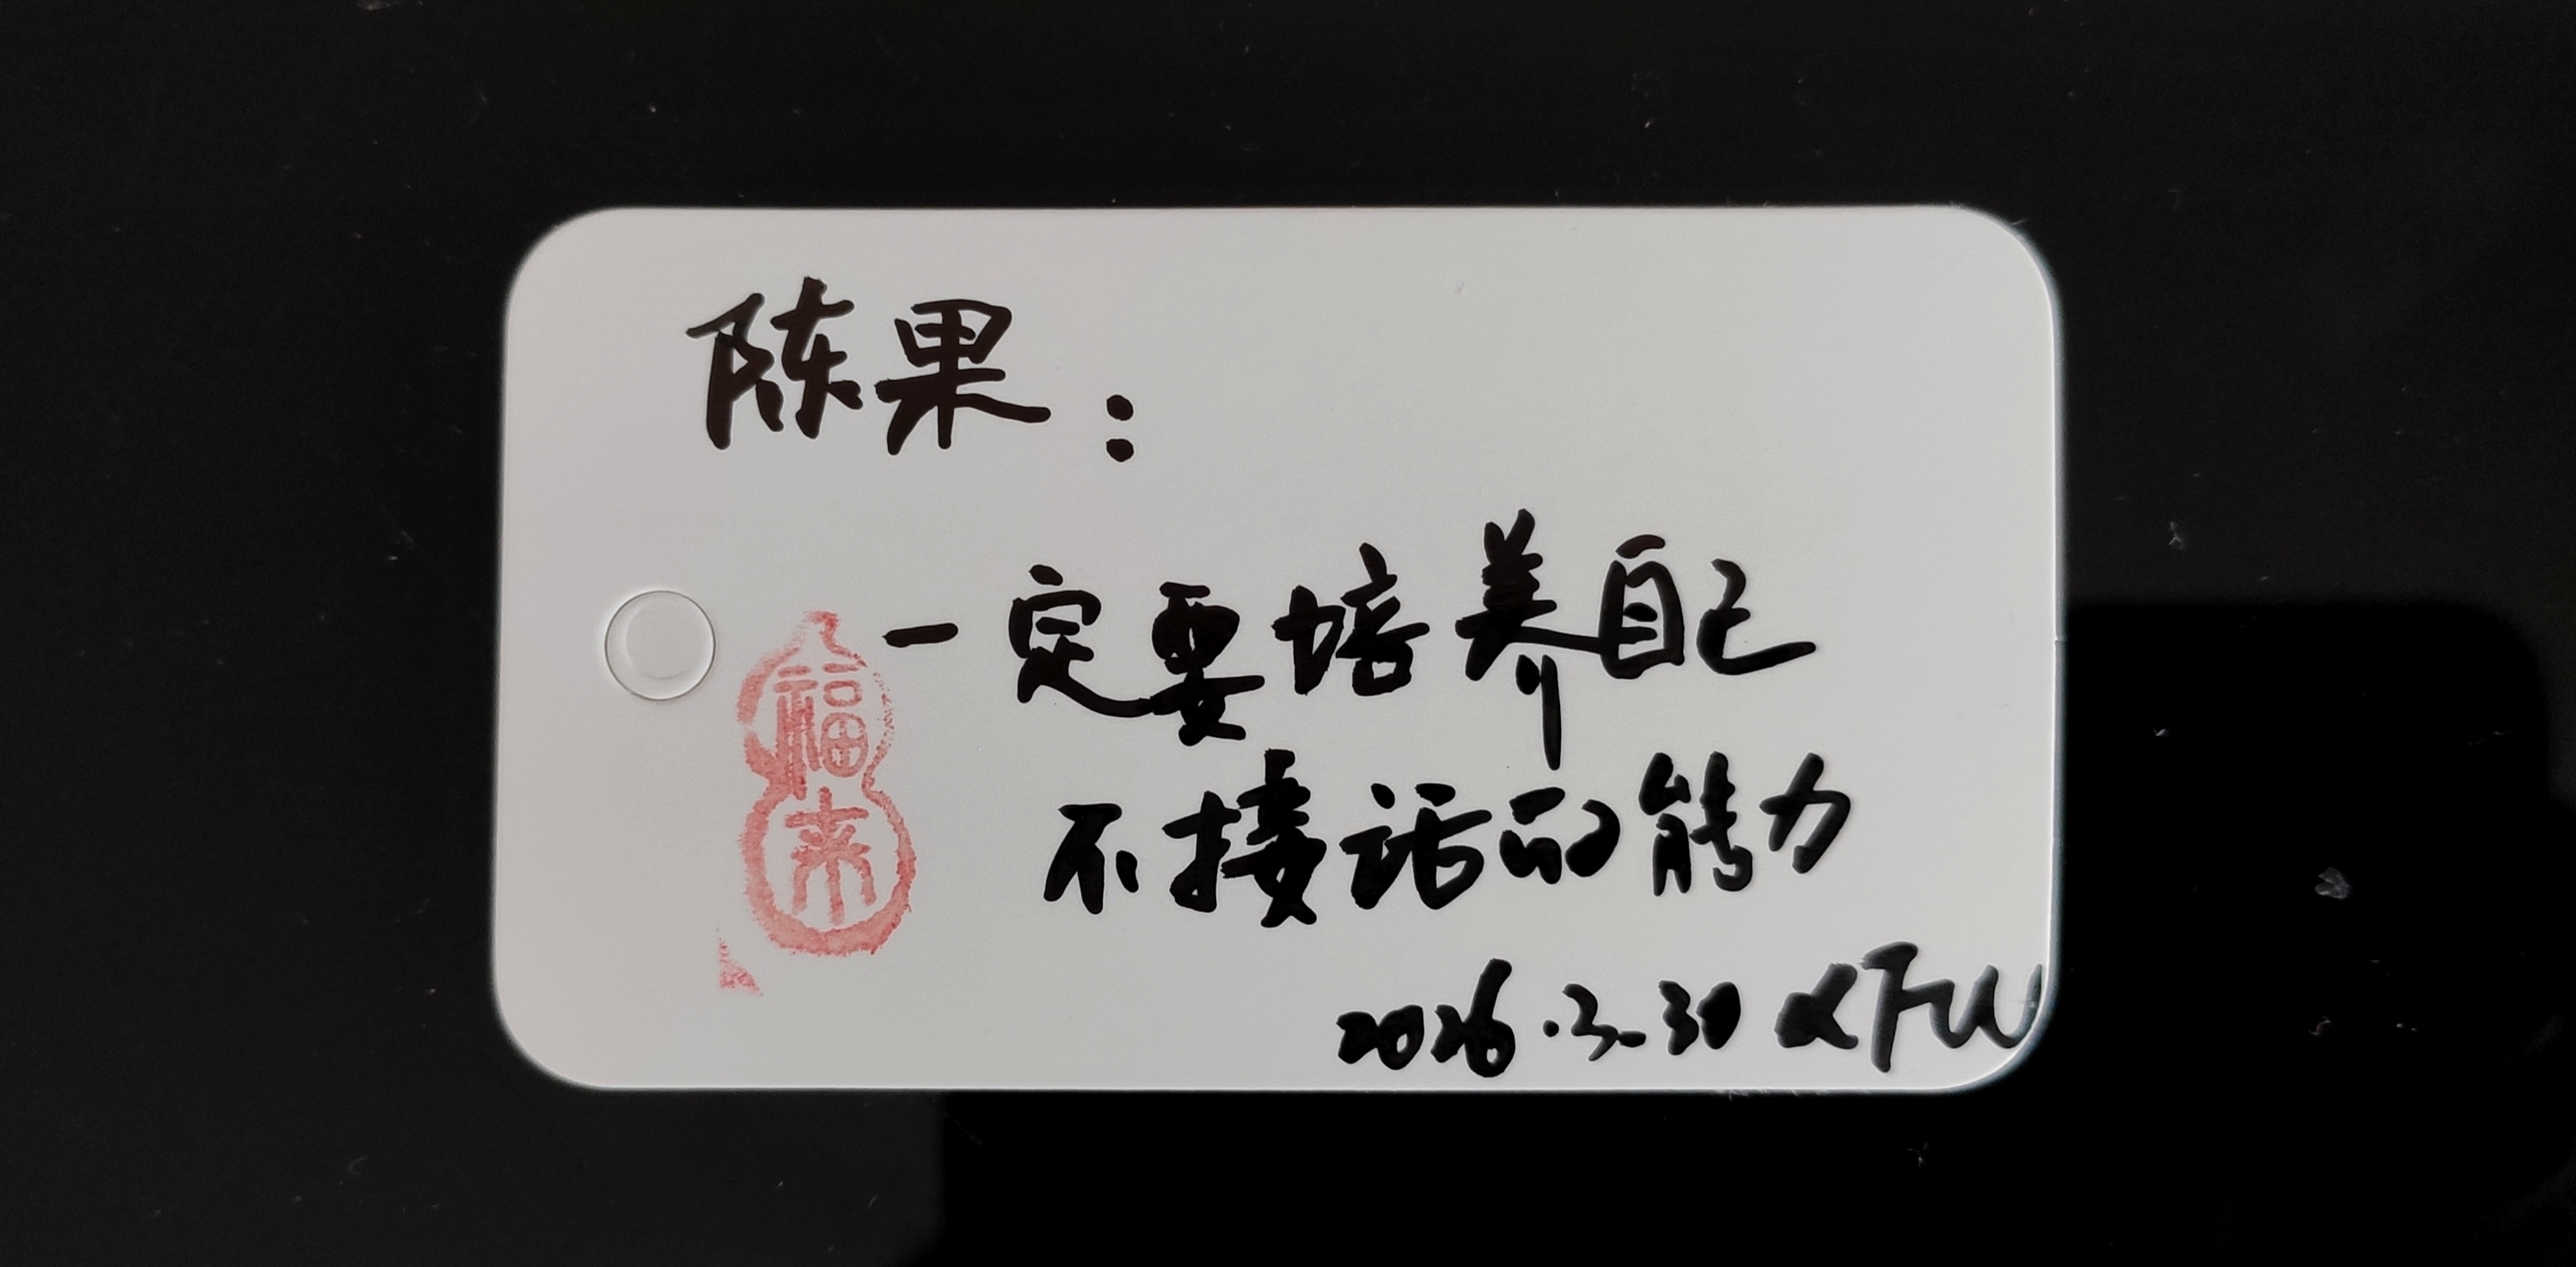 陈果：
一定要培养自己
不接话的能力
2026.3.30
福来